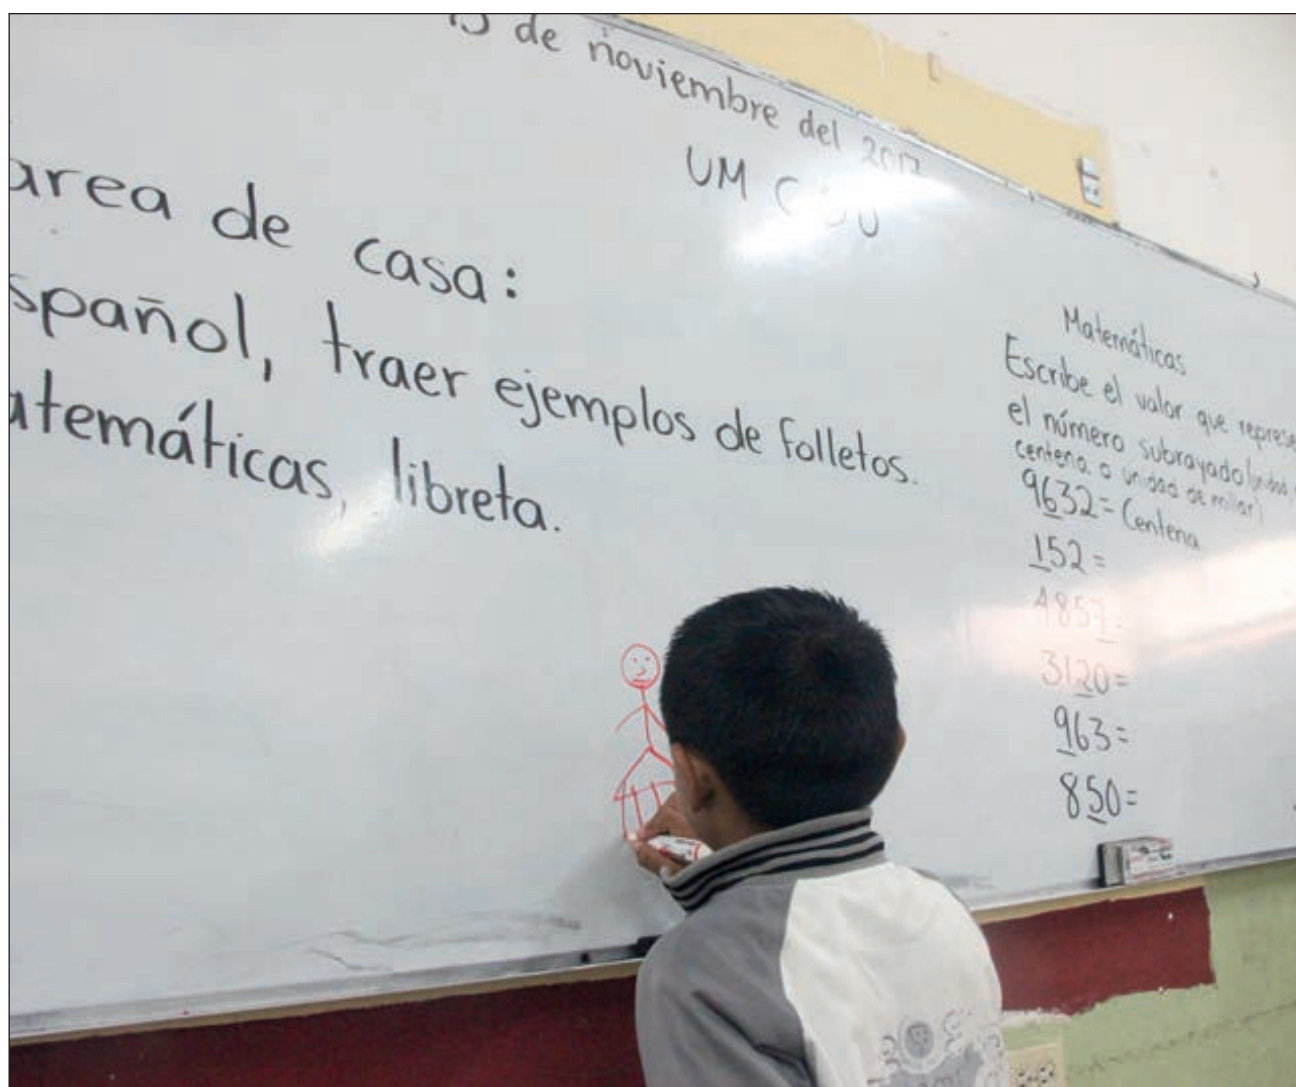 de noviembre del 2017
UM C D U
area de casa:
spañol, traer ejemplos de folletos.
atemáticas, libreta.
Matemáticas
Escribe el valor que represe
el número subrayado (unidad,
centena o unidad de millar)
9632 = Centena
152 =
4857 =
3120 =
963 =
850 =